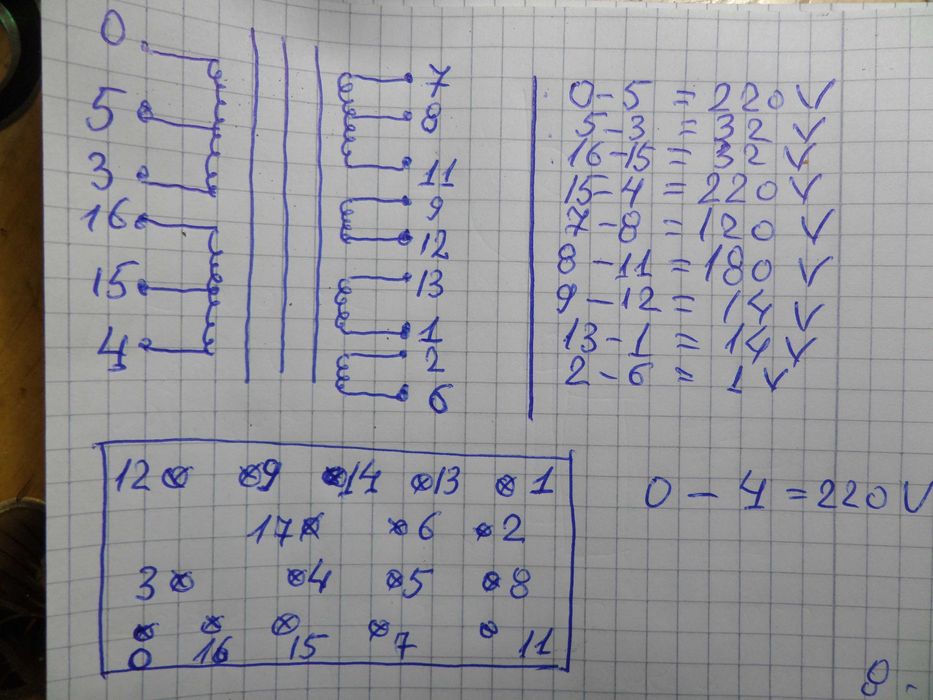 0
5
3
16
15
4
7
8
11
9
12
13
1
2
6
0-5 = 220 V
5-3 = 32 V
16-15 = 32 V
15-4 = 220 V
7-8 = 120 V
8-11 = 180 V
9-12 = 14 V
13-1 = 14 V
2-6 = 1 V
12 9 14 13 1
17 6 2
3 4 5 8
0 16 15 7 11
0 - 4 = 220 V